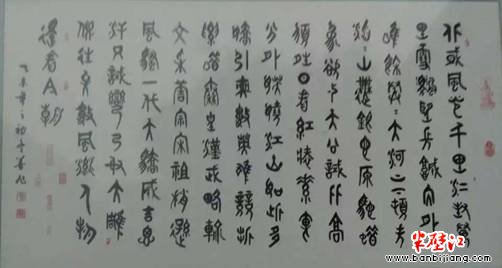 北國風光千里冰封萬
里雪飄望長城內外
惟餘莽莽大河上下頓失
滔滔山舞銀蛇原馳蠟
象欲與天公試比高
須晴日看紅裝素裹
分外妖嬈江山如此多
嬌引無數英雄競折
腰惜秦皇漢武略輸
文采唐宗宋祖稍遜
風騷一代天驕成吉思
汗只識彎弓射大雕
俱往矣數風流人物
還看今朝
半壁江
www.banbijiang.com